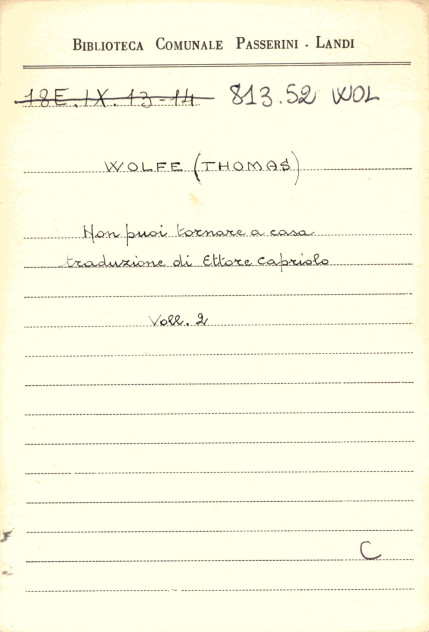 BIBLIOTECA COMUNALE PASSERINI - LANDI
18E.IX.13-14 813.52 WOL
WOLFE (THOMAS)
Non puoi tornare a casa
traduzione di Ettore Capriolo
Voll. 2
C